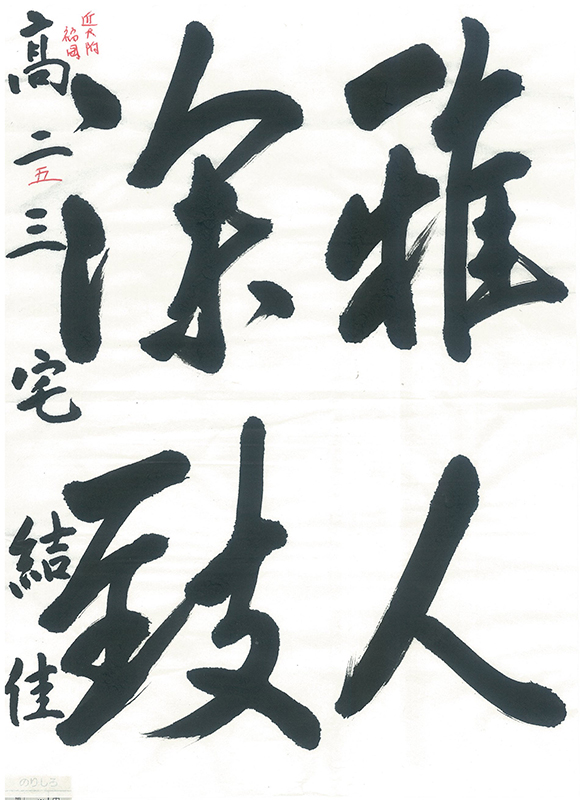 雅人
深致
高二 三宅結佳
近大附
福岡
五
のりしろ